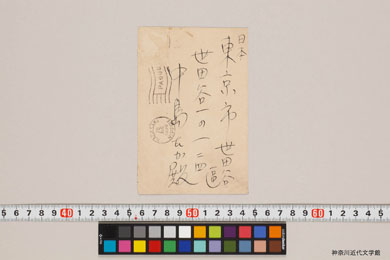 日本
東京市 世田谷區
世田谷一の一二四
中島たか殿
5 6 7 8 9 40 1 2 3 4 5 6 7 8 9 50 1 2 3 4 5 6 7 8 9 60 1 2 3 4 5
神奈川近代文学館